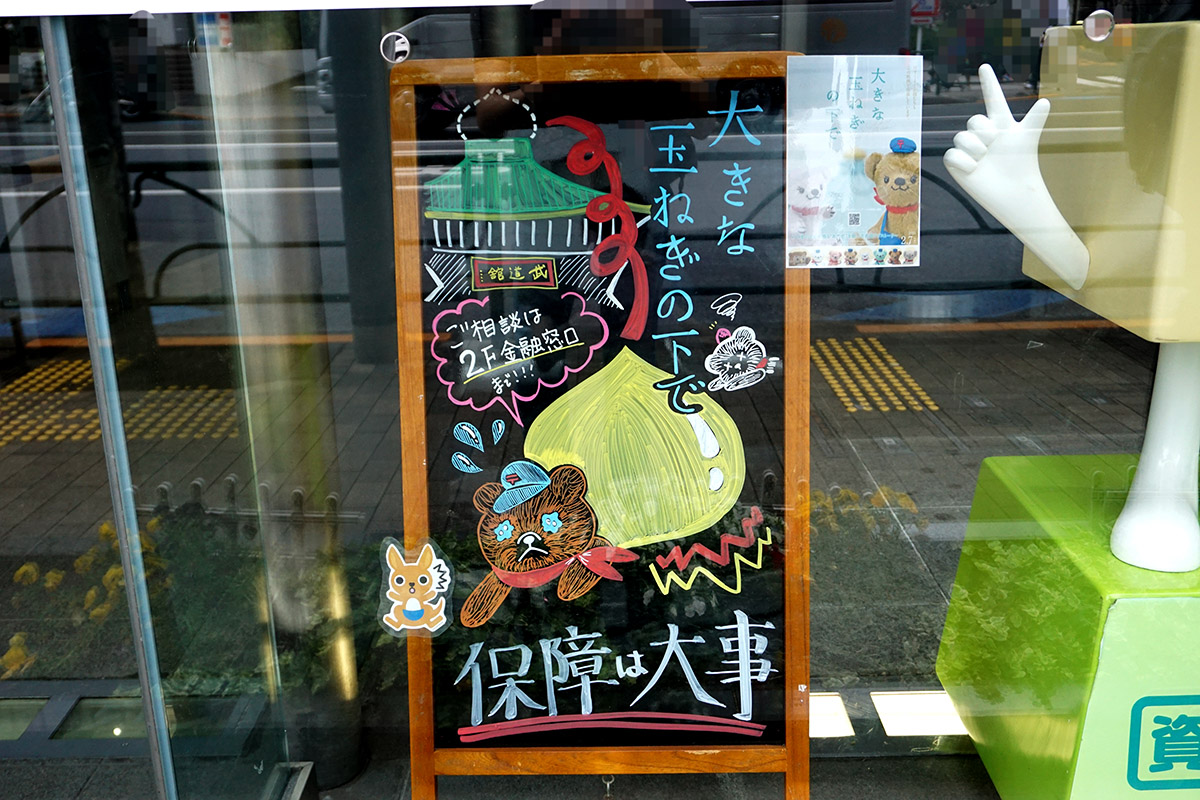 大きな
玉ねぎの下で
武道館
ご相談は
2F金融窓口
まで!!
保障は大事
大きな
玉ねぎ
の
27
資